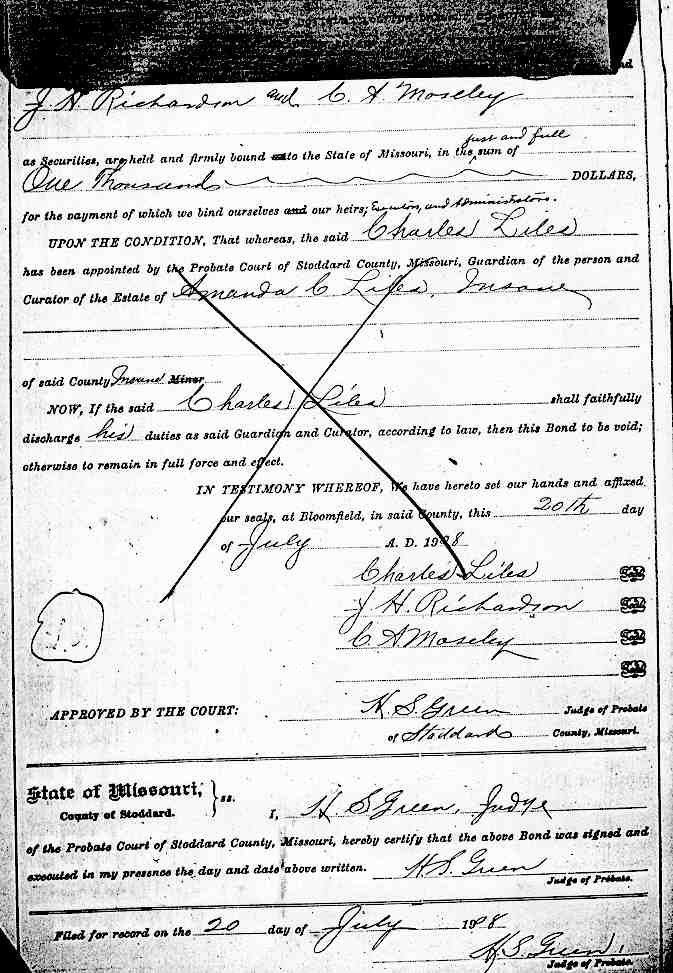 J. H. Richardson and C. A. Moseley
just and full
as Securities, are held and firmly bound to the State of Missouri, in the sum of
One Thousand DOLLARS,
for the payment of which we bind ourselves and our heirs, Executors, and Administrators.
UPON THE CONDITION, That whereas, the said Charles Liles
has been appointed by the Probate Court of Stoddard County, Missouri, Guardian of the person and
Curator of the Estate of Amanda C Liles, Insane
of said County Insane Minor
NOW, If the said Charles Liles shall faithfully
discharge his duties as said Guardian and Curator, according to law, then this Bond to be void;
otherwise to remain in full force and effect.
IN TESTIMONY WHEREOF, We have hereto set our hands and affixed
our seals, at Bloomfield, in said County, this 20th day
of July A. D. 1908
Charles Liles Seal
J. H. Richardson Seal
C A Moseley Seal
Seal
APPROVED BY THE COURT: H. S. Green Judge of Probate
of Stoddard County, Missouri.
State of Missouri, } ss.
County of Stoddard. I, H. S. Green, Judge
of the Probate Court of Stoddard County, Missouri, hereby certify that the above Bond was signed and
executed in my presence the day and date above written. H. S. Green
Judge of Probate.
Filed for record on the 20 day of July 1908
H. S. Green,
Judge of Probate.